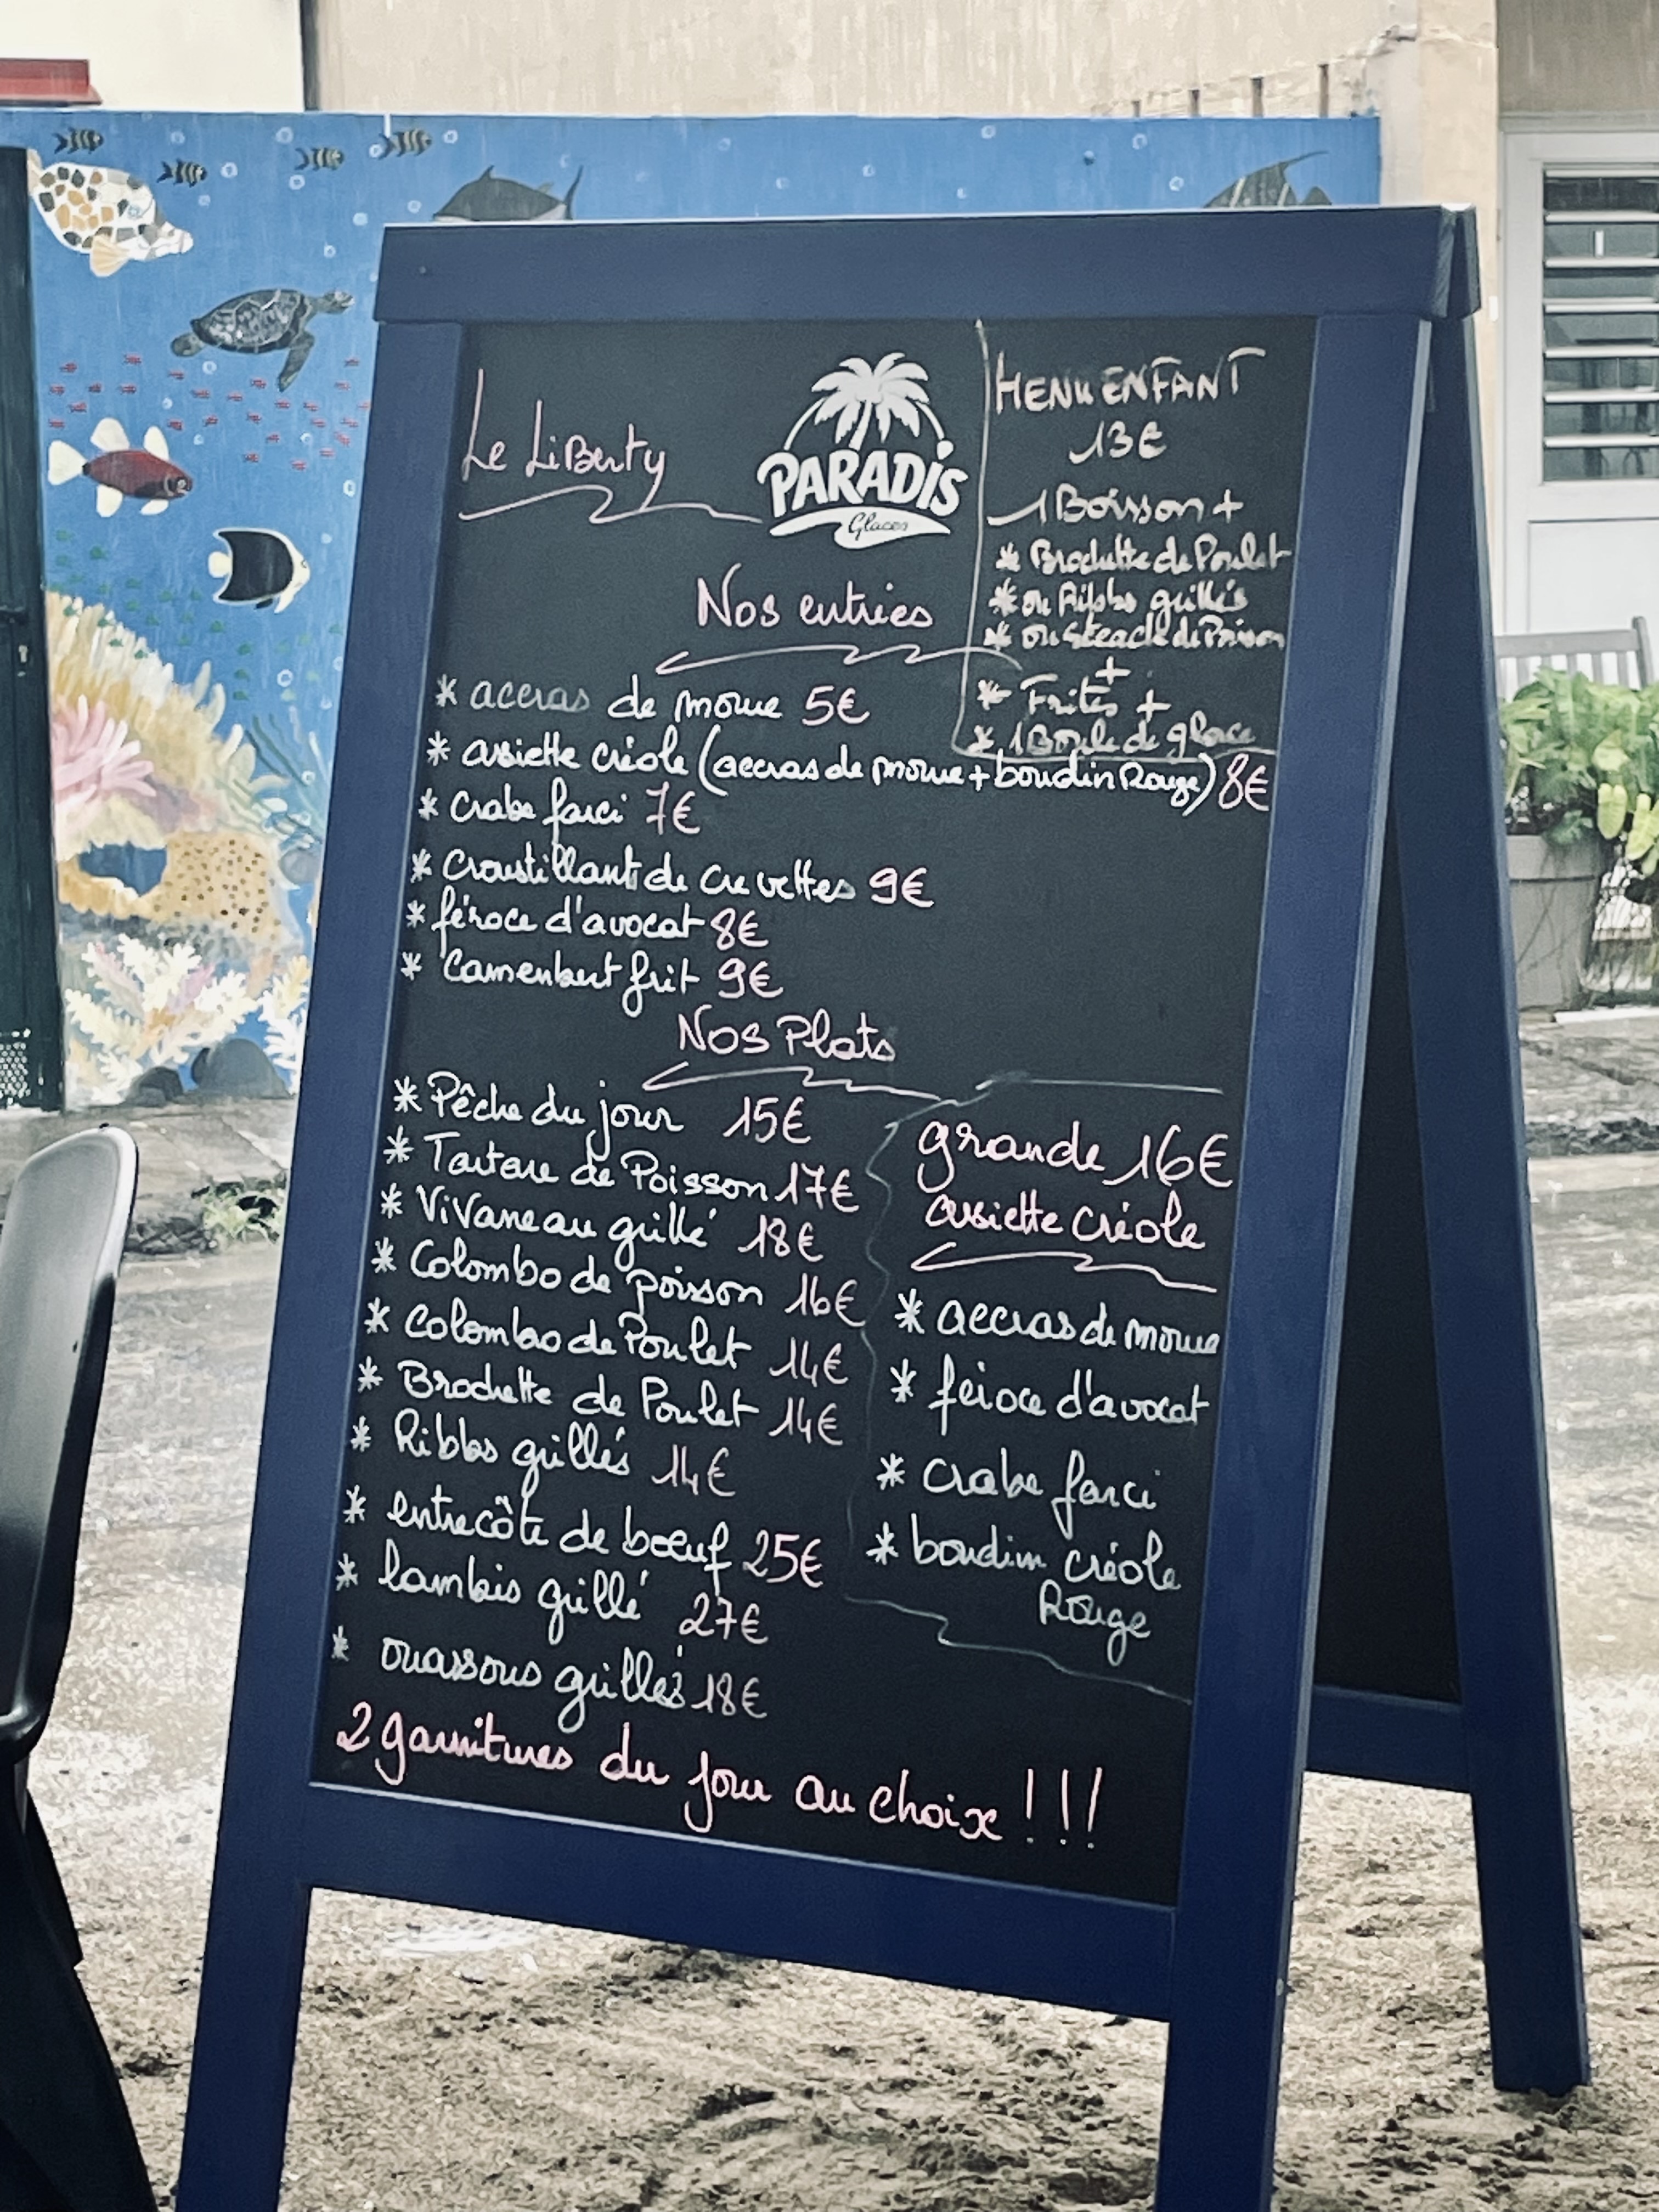 Le Liberty
PARADIS
Glaces
MENU ENFANT
13€
1 Boisson +
* Brochette de Poulet
* ou Ribbs grillés
* ou Steack de Poisson
+
* Frites +
* 1 Boule de glace
Nos entrées
* accras de morue 5€
* assiette créole (accras de morue + boudin Rouge) 8€
* Crabe farci 7€
* Croustillant de crevettes 9€
* féroce d'avocat 8€
* Camembert frit 9€
Nos Plats
* Pêche du jour 15€
* Tartare de Poisson 17€
* Vivaneau grillé 18€
* Colombo de poisson 16€
* Colombo de Poulet 14€
* Brochette de Poulet 14€
* Ribbs grillés 14€
* entrecôte de boeuf 25€
* lambis grillé 27€
* ouassous grillés 18€
grande 16€
assiette créole
* accras de morue
* féroce d'avocat
* Crabe farci
* boudin créole
Rouge
2 garnitures du jour au choix !!!